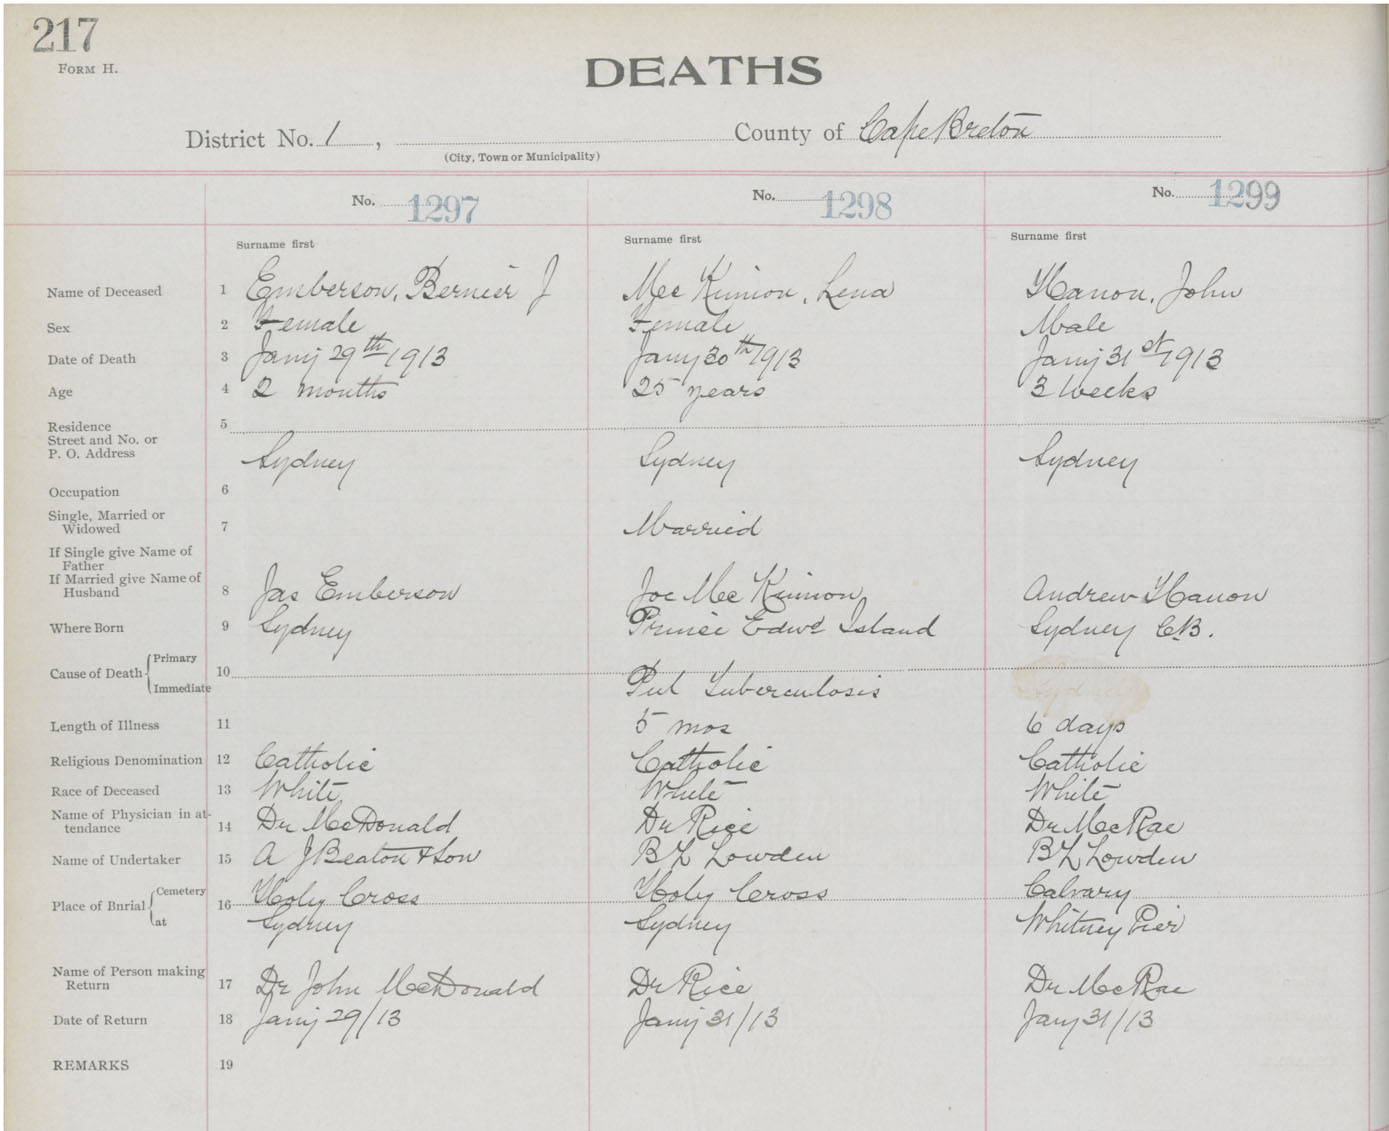 217
FORM H.
DEATHS
District No. 1, County of Cape Breton
(City, Town or Municipality)
No. 1297 No. 1298 No. 1299
Surname first Surname first Surname first
Name of Deceased 1 Emberson, Bernier J Mc Kinnon, Lena Hanon, John
Sex 2 Female Female Male
Date of Death 3 Jany 29th 1913 Jany 30th 1913 Jany 31st 1913
Age 4 2 months 25 years 3 weeks
Residence 5
Street and No. or
P. O. Address Sydney Sydney Sydney
Occupation 6
Single, Married or
Widowed 7 Married
If Single give Name of
Father
If Married give Name of
Husband 8 Jas Emberson Joe Mc Kinnon Andrew Hanon
Where Born 9 Sydney Prince Edwd Island Sydney C.B.
Cause of Death Primary 10
Immediate Pul Tuberculosis
Length of Illness 11 5 mos 6 days
Religious Denomination 12 Catholic Catholic Catholic
Race of Deceased 13 White White White
Name of Physician in at-
tendance 14 Dr McDonald Dr Rice Dr McRae
Name of Undertaker 15 A J Beaton & Son B L Lowden B L Lowden
Place of Burial Cemetery 16 Holy Cross Holy Cross Calvary
at Sydney Sydney Whitney Pier
Name of Person making
Return 17 Dr John McDonald Dr Rice Dr McRae
Date of Return 18 Jany 29/13 Jany 31/13 Jany 31/13
REMARKS 19